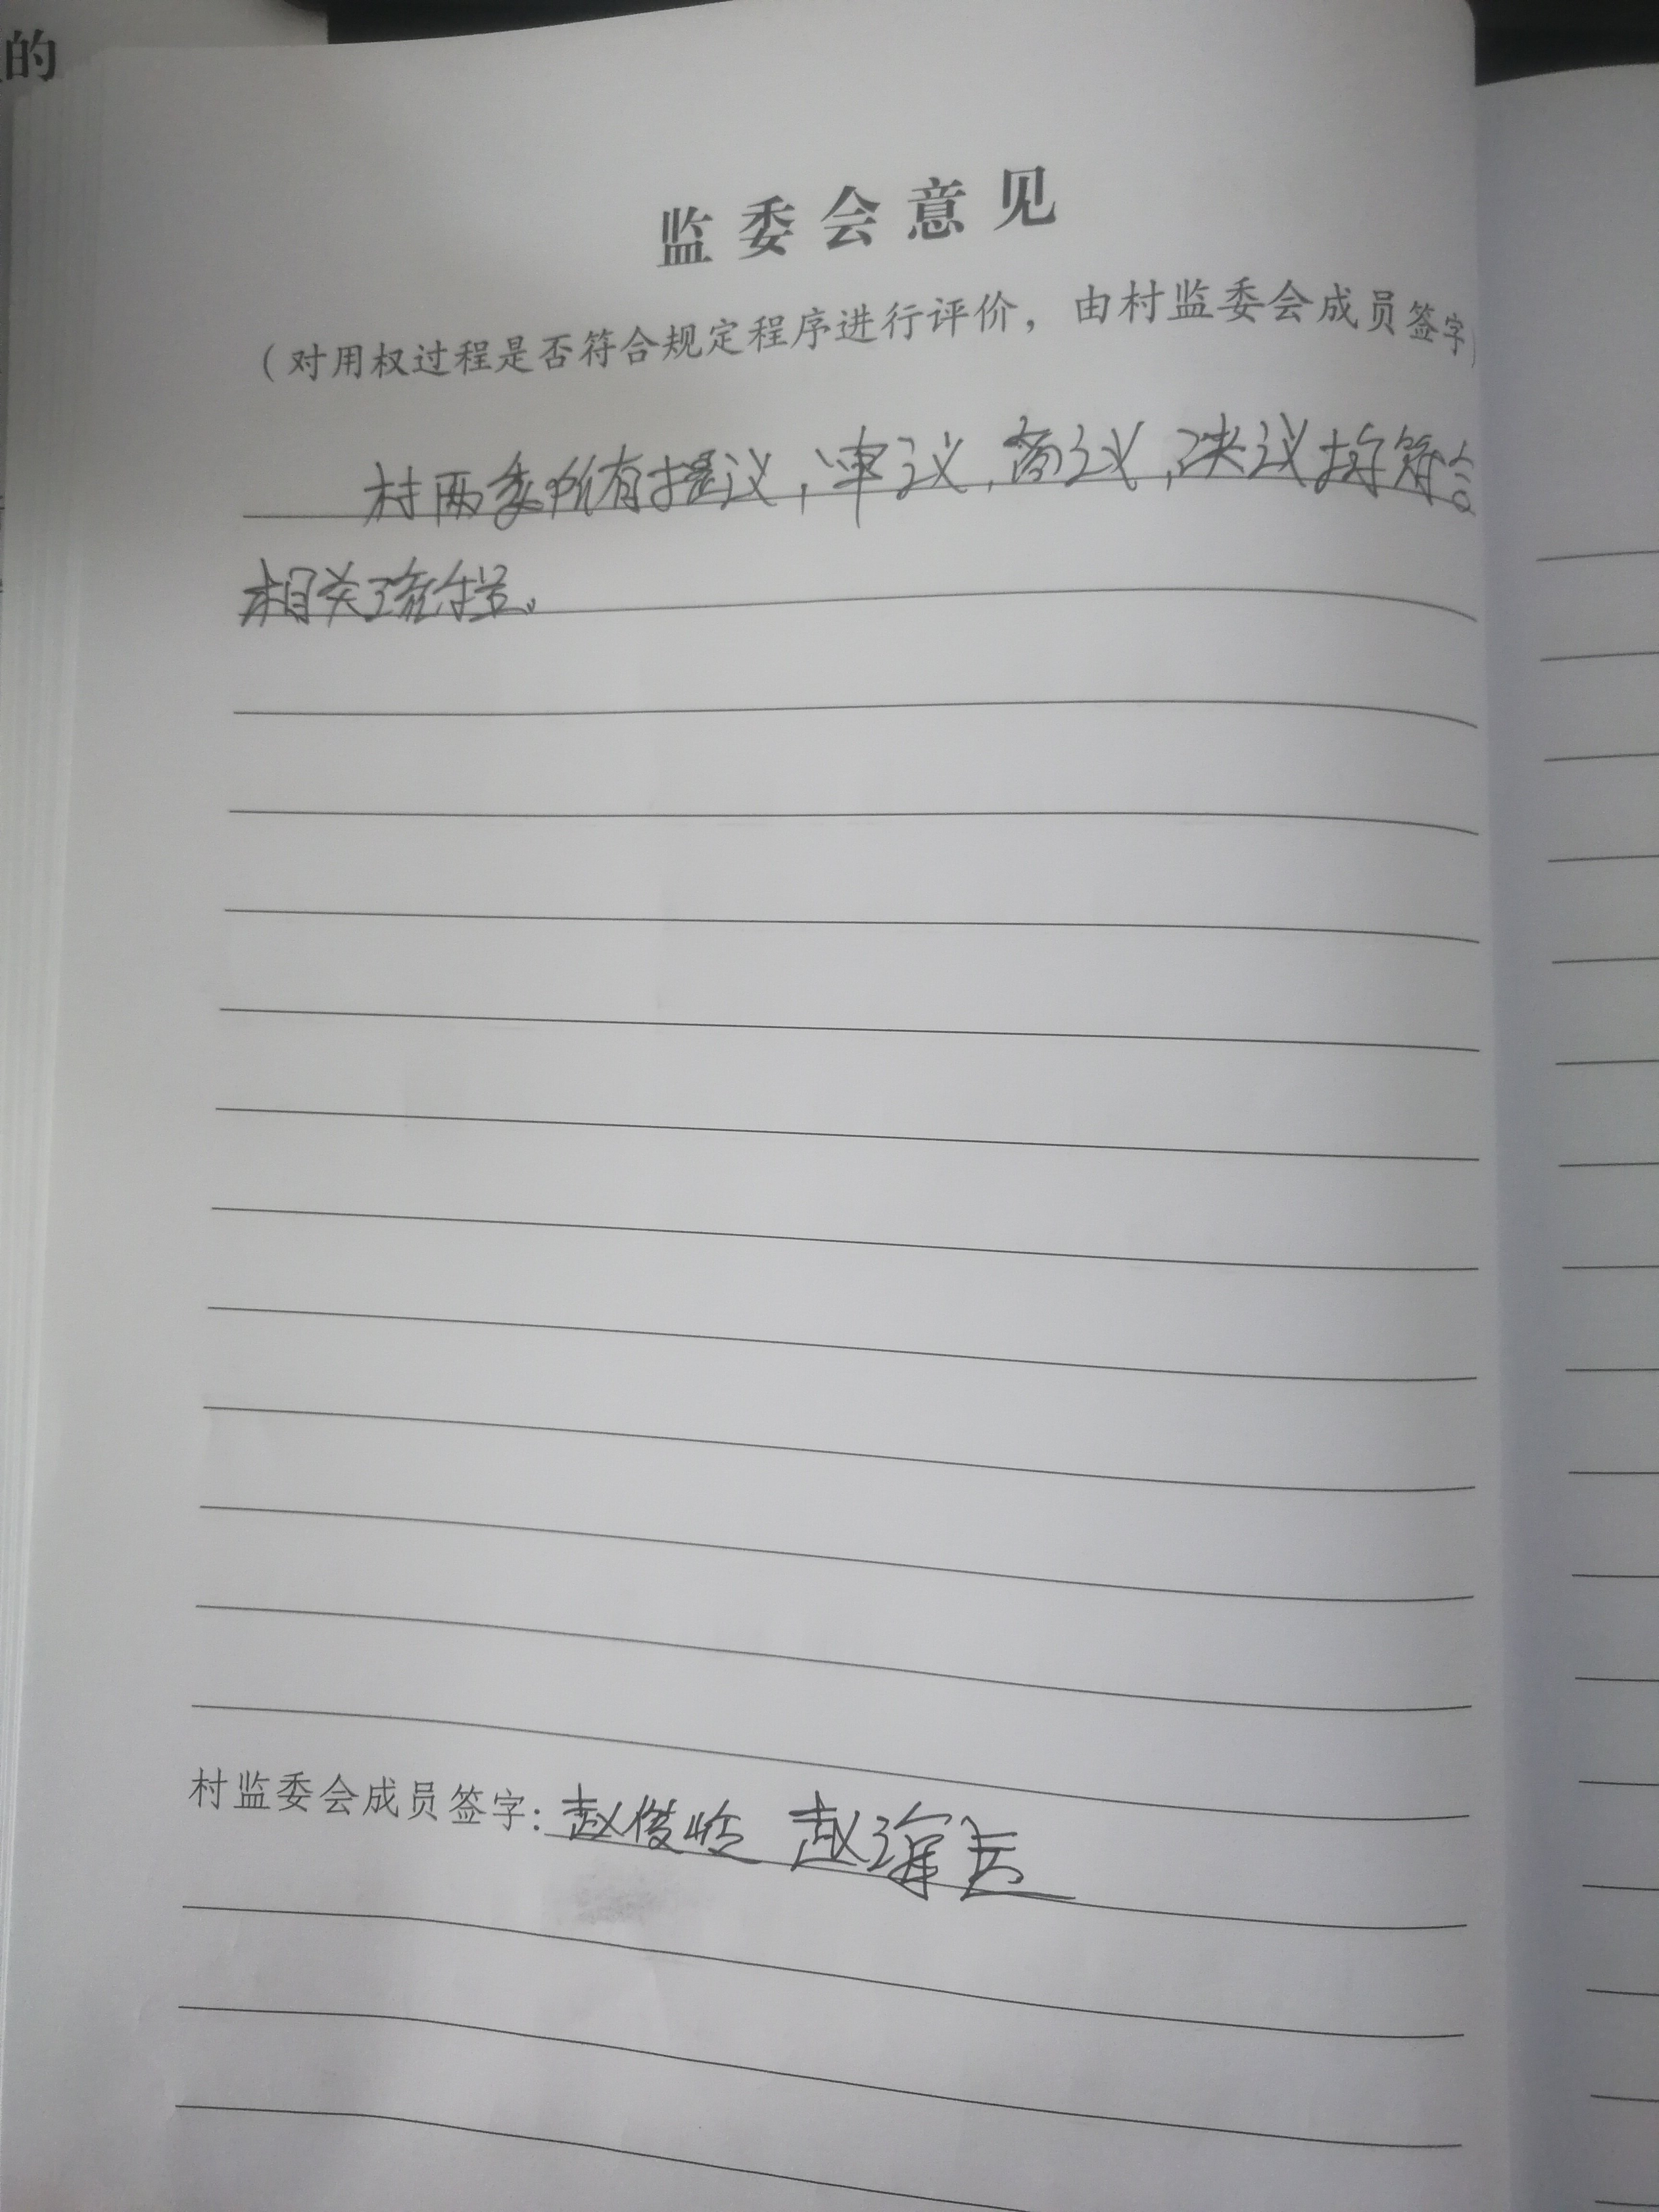 的
监委会意见
（对用权过程是否符合规定程序进行评价，由村监委会成员签字）
村两委所有提议，审议，商议，决议均符合
相关流程。
村监委会成员签字：赵俊岭 赵